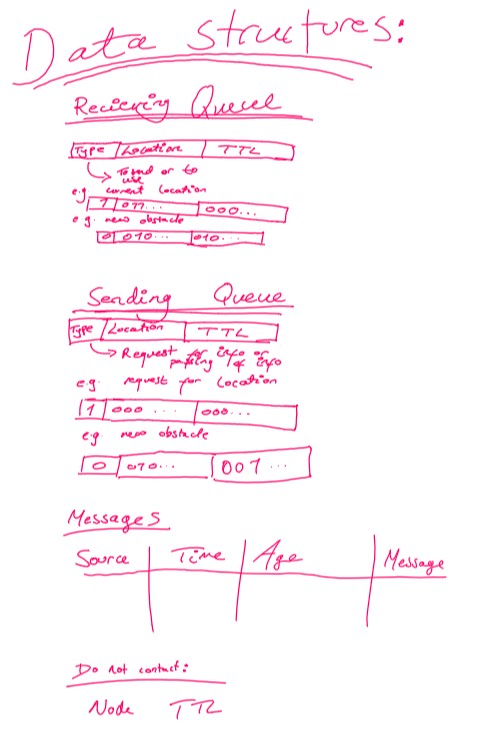 Data structures:
Recieving Queue
Type Location TTL
To send or to
use
e.g. current location
1 011... 000...
e.g. new obstacle
0 010... 010...
Sending Queue
Type Location TTL
Request for info or
passing of info
e.g. request for location
1 000 ... 000...
e.g. new obstacle
0 010... 001...
Messages
Source Time Age Message
Do not contact:
Node TTL